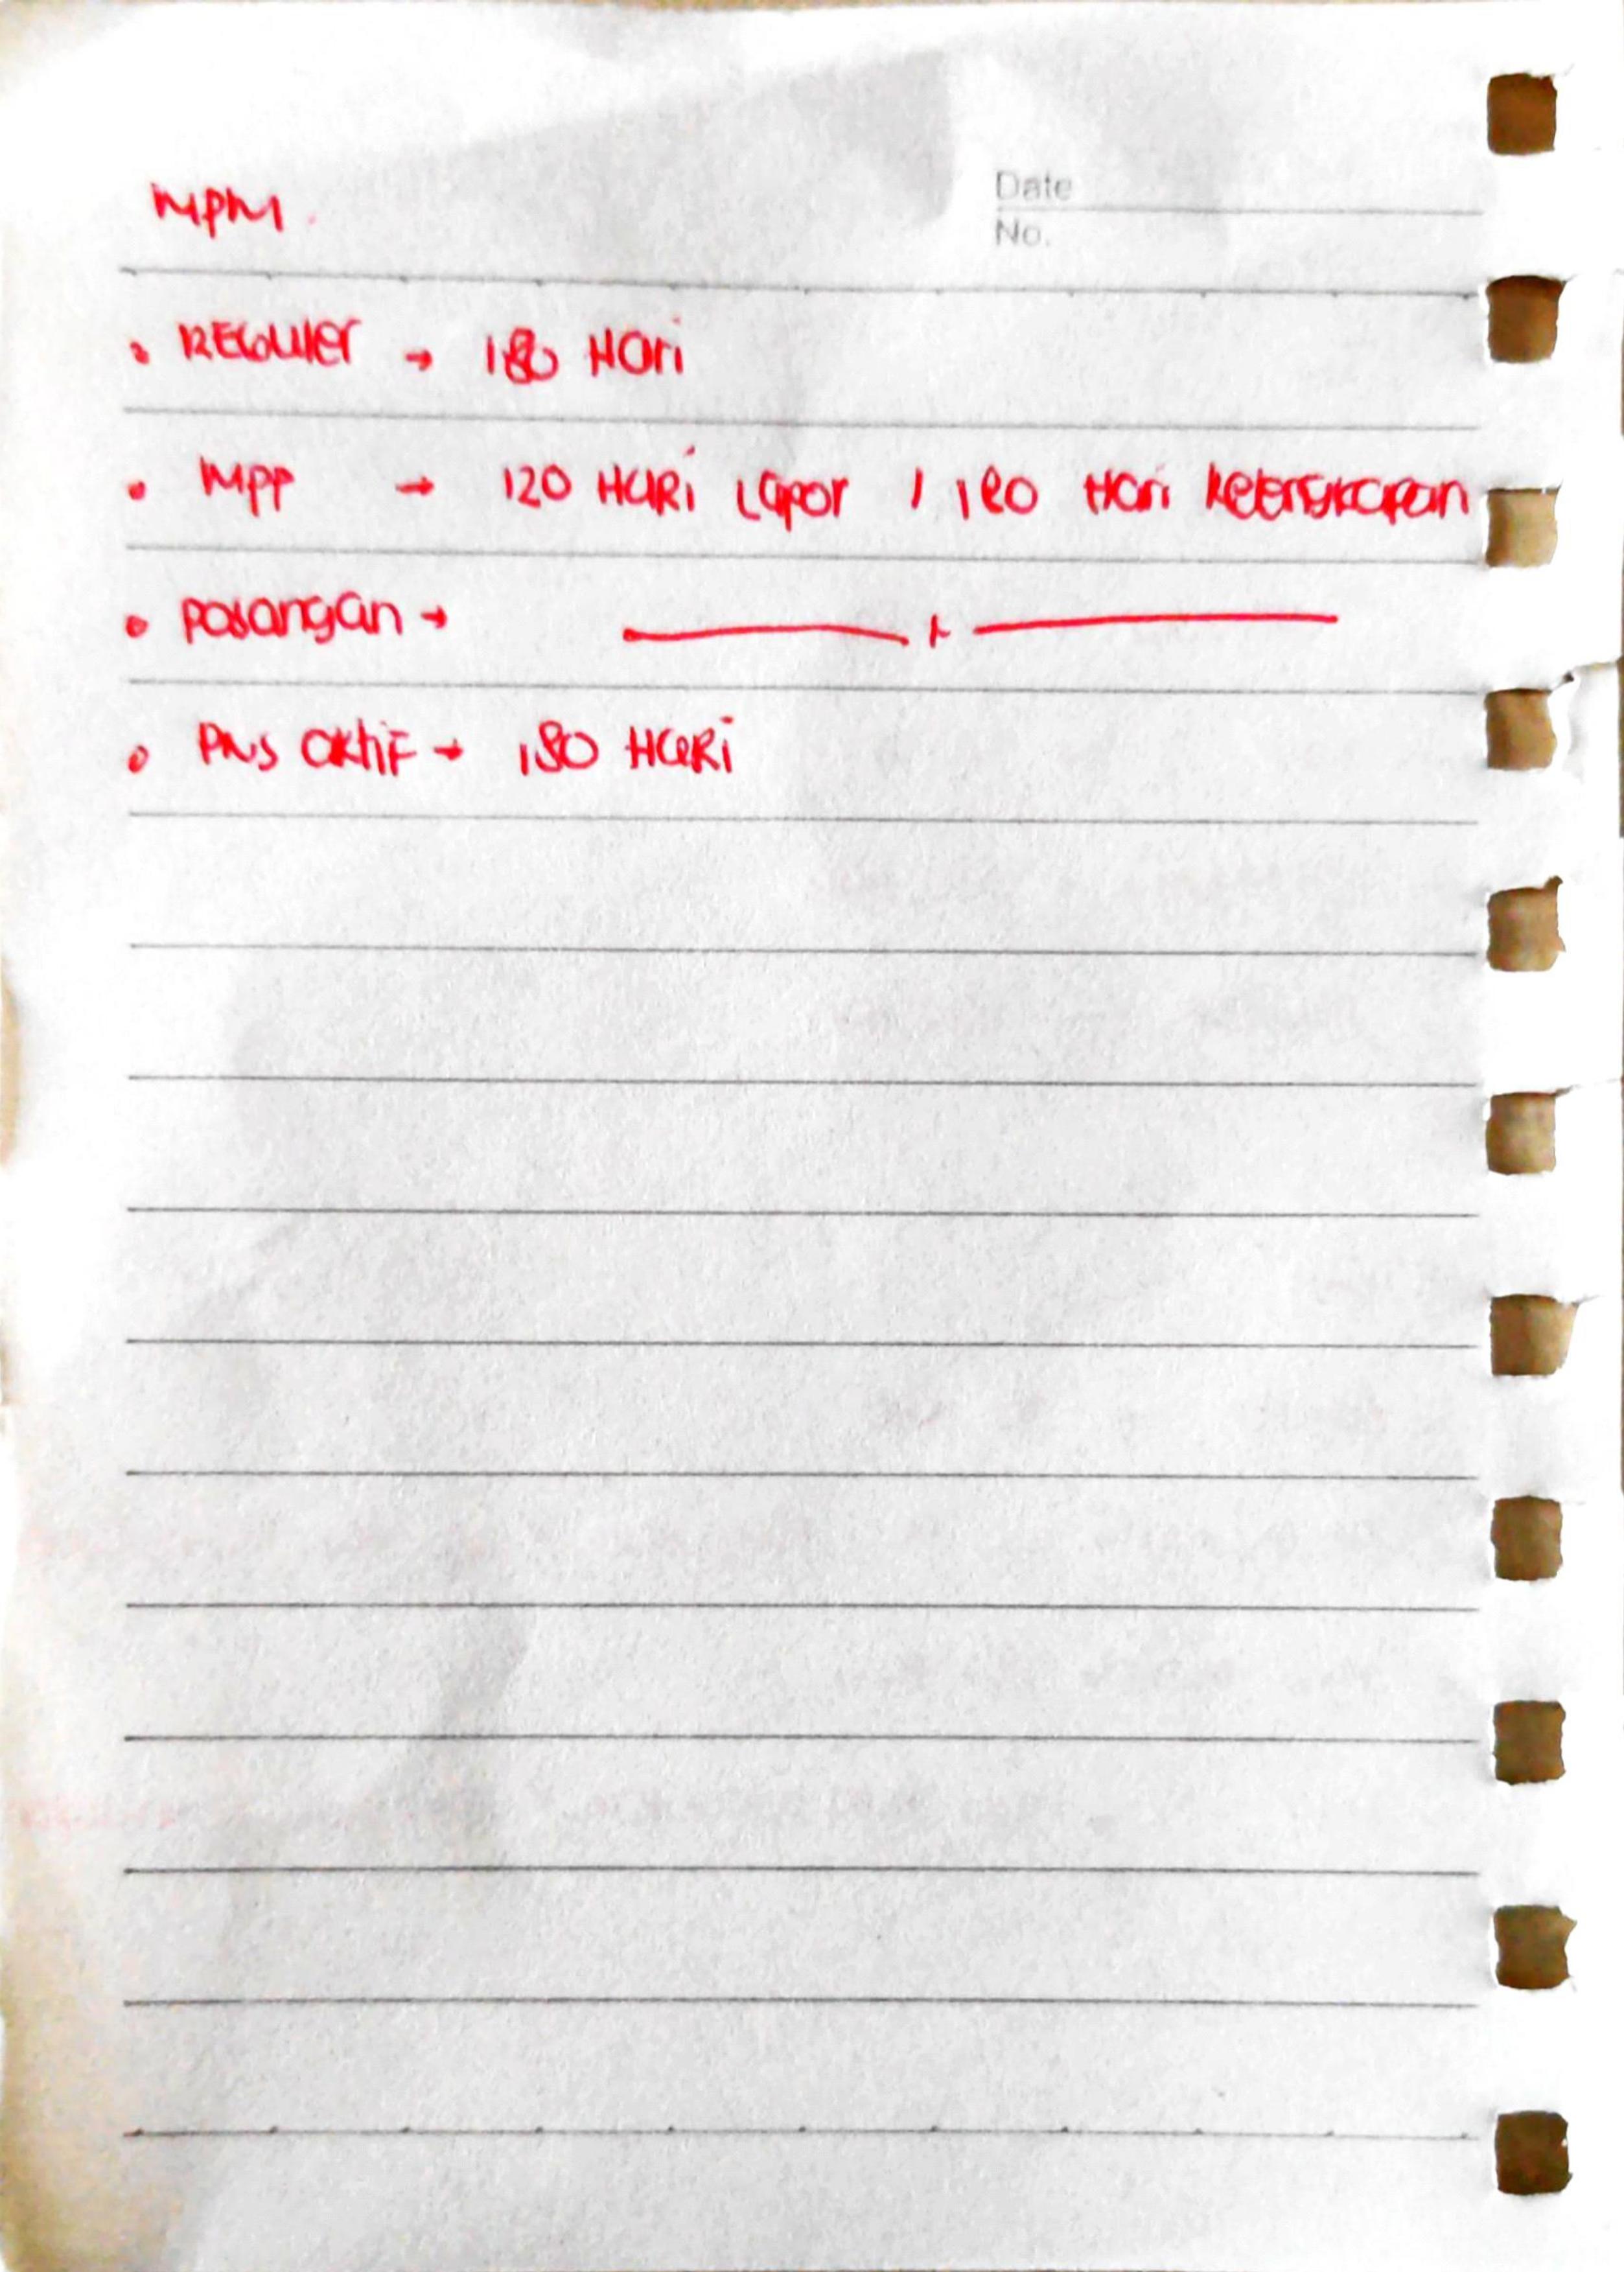 MPM.
Date
No.
• REGULER → 180 Hari
• MPP → 120 HARi Lapor / 180 Hari Kelengkapan
• Pasangan → ——— , ———
• PNS AKtiF → 180 HARi